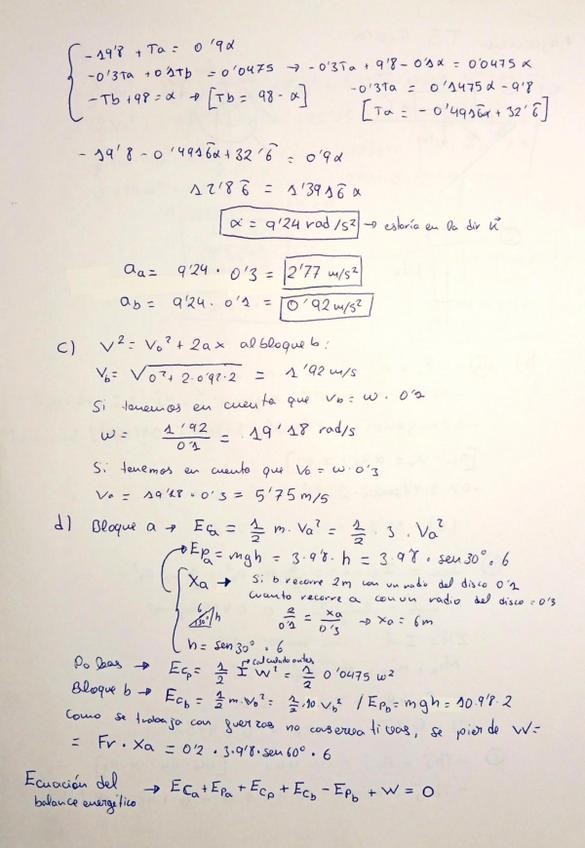 -19'8 + Ta = 0'9α
-0'3Ta + 0'1Tb = 0'0475 → -0'3Ta + 9'8 - 0'1α = 0'0475 α
-Tb + 98 = α → [Tb = 98 - α] -0'3Ta = 0'1475 α - 9'8
[Ta = -0'4916α + 32'6]
-19'8 - 0'4916α + 32'6 = 0'9α
12'86 = 1'3916 α
α = 9'24 rad/s² → estaría en la dir k
aa = 9'24 · 0'3 = 2'77 m/s²
ab = 9'24 · 0'1 = 0'92 m/s²
c) V² = Vo² + 2ax al bloque b:
Vb = √0² + 2·0'92·2 = 1'92 m/s
Si tenemos en cuenta que Vb = w · 0'1
w = 1'92/0'1 = 19'18 rad/s
Si tenemos en cuenta que Va = w · 0'3
Va = 19'18 · 0'3 = 5'75 m/s
d) Bloque a → Eca = 1/2 m · Va² = 1/2 · 3 · Va²
Epa = mgh = 3·9'8 · h = 3·9'8 · sen30° · 6
Xa → Si b recorre 2m con un radio del disco 0'1
cuanto recorre a con un radio del disco = 0'3
6 30° h 2/0'1 = xa/0'3 → xa = 6m
h = sen30° · 6
calculado antes
Poleas → Ecp = 1/2 I w² = 1/2 0'0475 w²
Bloque b → Ecb = 1/2 m·Vb² = 1/2·10 Vb² / Epb = mgh = 10·9'8·2
Como se trabaja con fuerzas no conservativas, se pierde W =
= Fr · Xa = 0'2 · 3·9'8·sen60° · 6
Ecuación del
balance energético → Eca + Epa + Ecp + Ecb - Epb + W = 0